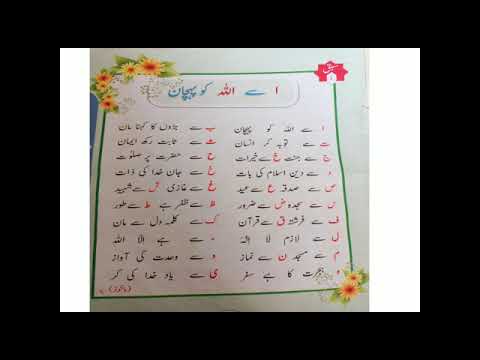 سبق
ا سے اللہ کو پہچان
ا سے اللہ کو پہچان ب سے بڑوں کا کہنا مان
ت سے توبہ کر انسان ث سے ثابت رکھ ایمان
ج سے جنت خ سے خیرات ح سے حضرت پر صلوٰت
د سے دین اسلام کی بات سے جان خدا کی ذات
ص سے صدقہ ع سے عید غ سے غازی ش سے شہید
س سے سجدہ ض سے ضرور ظ سے ظفر ہے ط سے طور
ف سے فرشتہ ق سے قرآن ک سے کلمہ دل سے مان
ل سے لازم لا الٰہ ء سے ہے الا اللہ
م سے مسجد ن سے نماز و سے وحدت کی آواز
ہجرت کا ہے سفر ی سے یاد خدا کی کر
(ماخوذ)